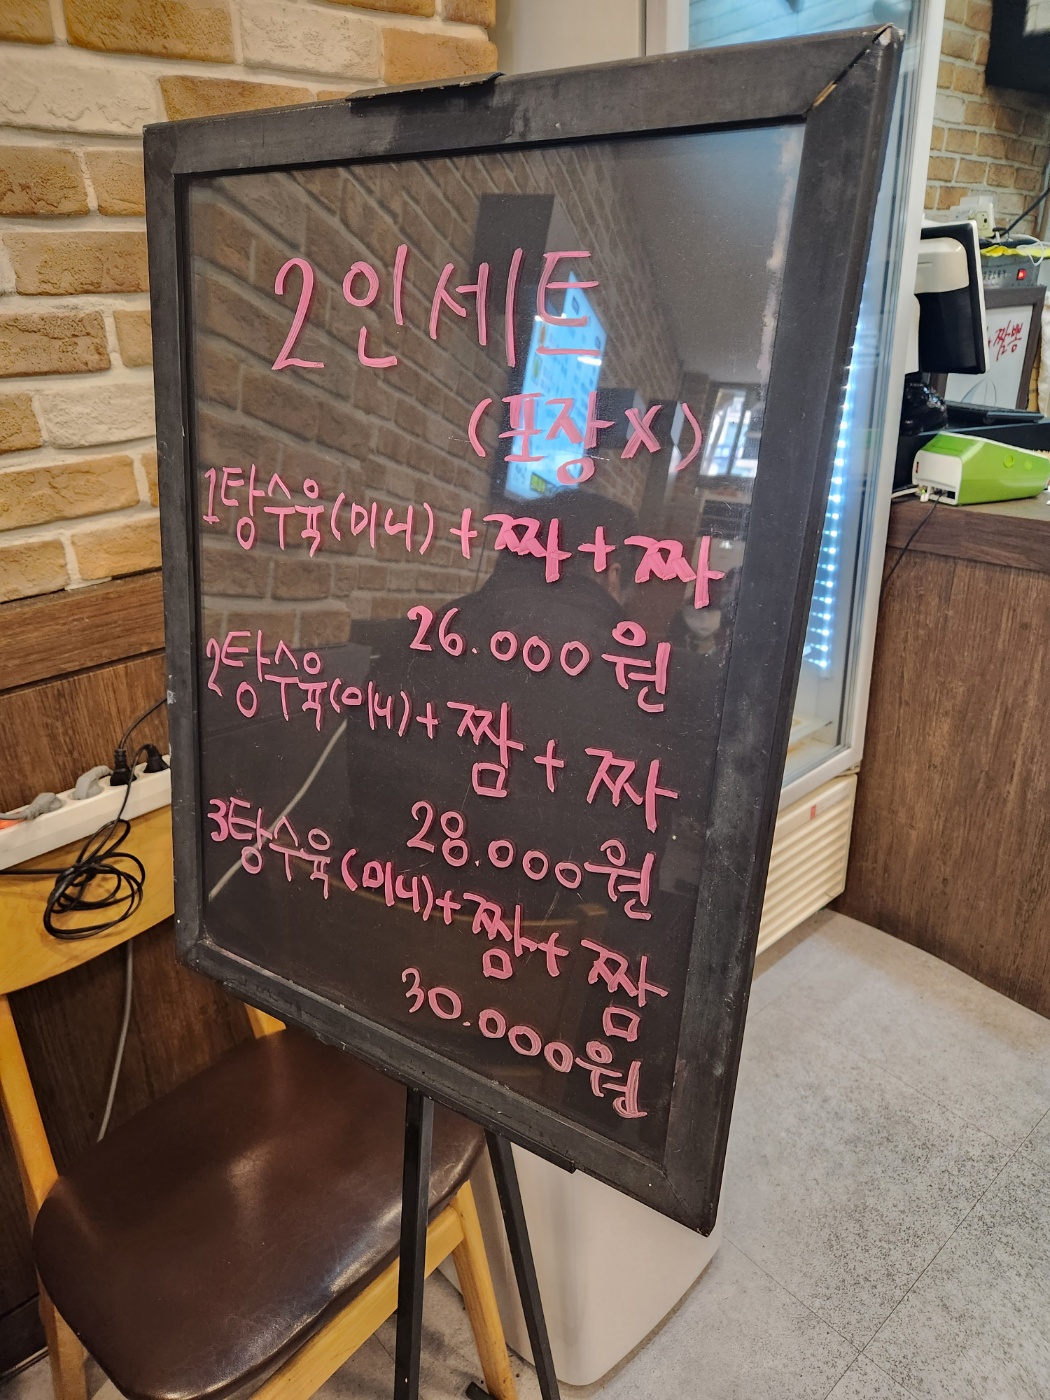 2인세트
(포장X)
1탕수육(미니)+짜+짜
26.000원
2탕수육(미니)+짬+짜
28.000원
3탕수육(미니)+짬+짬
30.000원
짬뽕